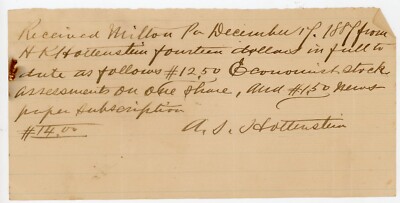 Received Milton Pa December 17. 1889 from
H K Hottenstein fourteen dollars in full to
date as follows #12,50 Economist stock
assessments on one share, and #1,50 news
paper subscription
#14.00
A. S. Hottenstein